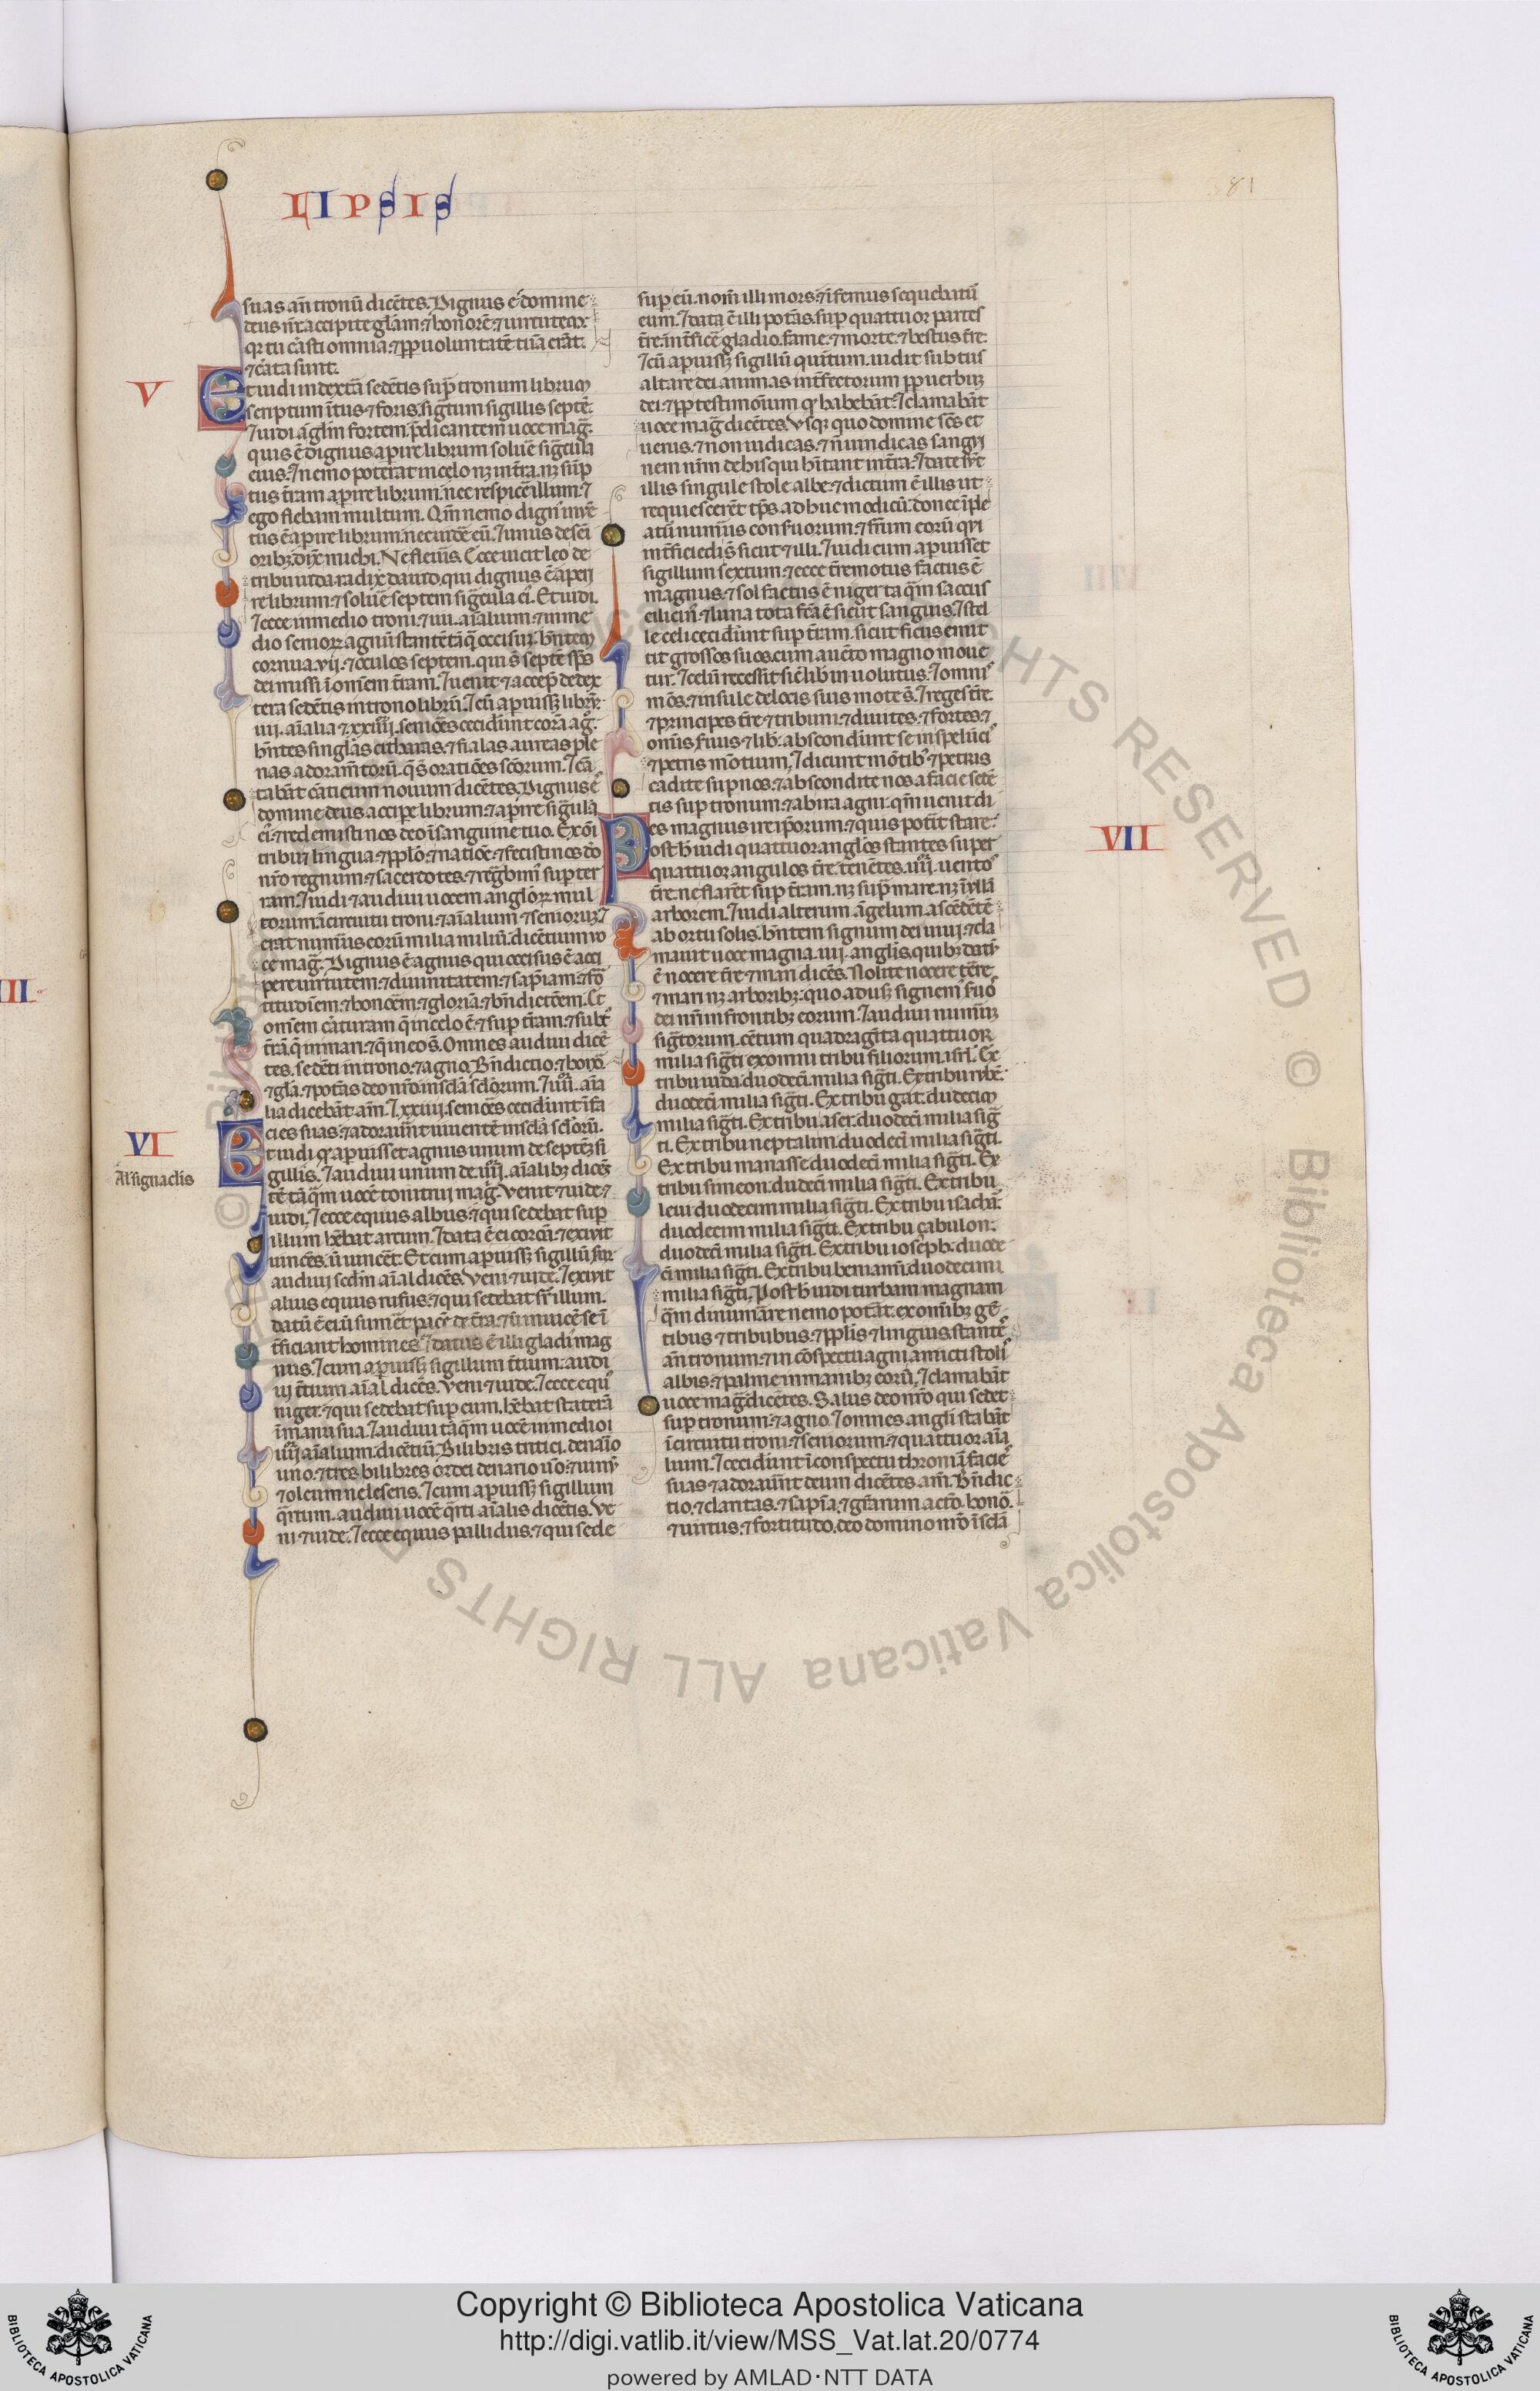 LIPSIS
381
suas an̄ tronū dicētes. Dignus ē domine
deus nr̄ accipe gl̄am. ⁊ honorē. ⁊ uirtutem
qr tu cāsti omnia. ⁊ pp uoluntatē tuā erāt.
⁊ cāta sunt.
V
Et uidi in dextā sedētis sup tronum librum
scriptum ītus ⁊ foris. sigtum sigillis septē.
⁊ uidi āglm fortem p̄dicantem uoce maḡ.
quis ē dignus apire librum ⁊ soluē siḡcula
eius. ⁊ nemo poterat in celo nz in tr̄a. nz sub
tus tr̄am apire librum. nec respicē illum. ⁊
ego flebam multum. Qm̄ nemo dign' inuē
tus ē apire librum. nec uidē eū. ⁊ unus de sēi
oribz dix̄ michi. Ne fleueris. Ecce uicit leo de
tribu iuda. radix dauid. qui dignus ē aperi
re librum. ⁊ soluē septem siḡcula ei'. Et uidi.
⁊ ecce in medio troni. ⁊ iiii. aīalium. ⁊ in me
dio seniorꝝ agnū stantē tāq̄ occisū. hn̄tem
cornua. vij. ⁊ occulos septem. qui s̄ septē sp̄s
dei missi ī omēm tr̄am. ⁊ uenit. ⁊ accep̄ de dex
tera sedētis in trono librū. ⁊ cū apuissz librū.
iiij. aīalia ⁊ xxiiij. seniōes cecidūnt corā aḡ.
hn̄tes singl'as citharas. ⁊ fialas aureas ple
nas adoramtorū. q̄ s̄ oratiōes scōrum. ⁊ cā
tabāt cāticum nouum dicētes. Dignus ē
domine deus accipe librum. ⁊ apire siḡcula
ei'. ⁊ redemisti nos deo ī sanguine tuo. Ex oī
tribu ⁊ lingua. ⁊ pplō. ⁊ natiōe. ⁊ fecisti nos dō
nr̄o regnum. ⁊ sacerdotes. ⁊ reḡbim' sup ter
ram. ⁊ uidi ⁊ audiui uocem anglorꝝ mul
torum ī circuitu troni. ⁊ aīalium ⁊ seniorum. ⁊
erat num̄us eorū milia miliū. dicētium uo
ce maḡ. Dignus ē agnus qui occisus ē acci
pere uirtutem. ⁊ diuinitatem. ⁊ sap̄iam. ⁊ fō
titudiem. ⁊ honoēm. ⁊ gloriā. ⁊ bn̄dictōem. Et
omēm cāturam q̄ in celo ē. ⁊ sup tr̄am. ⁊ subt'
tr̄ā. q̄ in mari. ⁊ q̄ in eo s̄. Omnes audiui dicē
tes. sedēti in trono. ⁊ agno. Bn̄dictio. ⁊ honō.
⁊ glā. ⁊ potās deo nr̄o in sclā sclōrum. ⁊ iiii. aīa
lia dicebāt am̄. ⁊ xxiiij. seniōes cecidūnt ī fa
cies suas. ⁊ adorauūnt uiuentē in sclā sclōrū.
VI
Al' signaclis
Et uidi q̄ apuisset agnus unum de septē si
gillis. ⁊ audiui unum de iiij. aīalibz dicē
tē tāq̄m uocē tonitrui maḡ. Veni ⁊ uide. ⁊
uidi. ⁊ ecce equus albus. ⁊ qui sedebat sup
illum hēbat arcum. ⁊ data ē ei corōa. ⁊ exiuit
uincēs. ū uincēt. Et cum apuissz sigillū scdm
audiui scdm aīal dicēs. Veni ⁊ uide. ⁊ exiuit
alius equus rufus. ⁊ qui sedebat sr̄ illum.
datū ē ei ū sumēt pacē de tr̄a. ⁊ ū inuicē se ī
tr̄ficiant homines. ⁊ datus ē illi gladi' mag
nus. ⁊ cum apuissz sigillum tr̄tium. audi
ui tr̄tium aīal dicēs. Veni ⁊ uide. ⁊ ecce equ'
niger. ⁊ qui sedebat sup eum. hēbat staterā
ī manu sua. ⁊ audiui tāq̄m uocē in medio
iiij aīalium. dicētiū. Bilibris tritici. denaīo
uno. ⁊ tres bilibres ordei denario uno. ⁊ uinū
⁊ oleum ne leseris. ⁊ cum apuissz sigillum
q̄rtum. audiui uocē q̄rti aīalis dicētis. Ve
ni ⁊ uide. ⁊ ecce equus pallidus. ⁊ qui sede
sup eū. nom̄ illi mors. ⁊ īfernus sequebatū
eum. ⁊ data ē illi potās. sup quattuor partes
tr̄e. int̄ficē gladio. fame. ⁊ morte. ⁊ bestiis tr̄e.
⁊ cū apuissz sigillū quintum. uidi subtus
altare dei animas int̄fectorum pp uerbum
dei. ⁊ pp testimōium q̄ habebāt. ⁊ clamabāt
uoce maḡ dicētes. Vsq quo domine scs̄ et
uerus. ⁊ non iudicas. ⁊ n̄ uindicas sangui
nem nrm̄ de his qui hītant in tr̄a. ⁊ date sr̄t
illis singule stole albe. ⁊ dictum ē illis ut
requiescerēt tp̄s. adhuc modicū. donec īple
atū num̄us conseruorum. ⁊ fr̄um eorū qui
int̄ficiēdi s̄ sicut ⁊ illi. ⁊ uidi cum apuisset
sigillum sextum. ⁊ ecce tr̄emotus factus ē
magnus. ⁊ sol factus ē niger taq̄m saccus
cilicin'. ⁊ luna tota fc̄a ē sicut sanguis. ⁊ stel
le celi cecidūnt sup tr̄am. sicut ficus emit
tit grossos suos. cum a uēto magno moue
tur. ⁊ celū recessit sic̄ lib' inuolutus. ⁊ omnis
mōs. ⁊ insule de locis suis mote s̄. ⁊ reges tr̄e
⁊ principes tr̄e ⁊ tribuni. ⁊ diuites. ⁊ fortes. ⁊
omīs s̄uus ⁊ lib'. abscondūnt se in spelūcis
⁊ petris mōtium. ⁊ dicunt mōtibus ⁊ petris
cadite sup nos. ⁊ abscondite nos a facie sedē
tis sup tronum. ⁊ ab ira agni. qm̄ uenit di
es magnus ire ip̄orum. ⁊ quis potit stare.
VII
Post h̄ uidi quattuor anglōs stantes super
quattuor angulos tr̄e. tenētes. iiij. uentos
tr̄e. ne flarēt sup tr̄am. nz sup mare. nz ī ullā
arborem. ⁊ uidi alterum āgelum ascēdētē
ab ortu solis. hn̄tem signum dei uiui. ⁊ cla
mauit uoce magna. iiij. anglis. quibz datū
ē nocere tr̄e ⁊ mari dicēs. Nolite nocere tr̄e
⁊ mari nz arboribz. quo adusz signem' s̄uos
dei nr̄i in frontibz eorum. ⁊ audiui num̄um
sigtorum. cētum quadragīta quattuor
milia siḡti ex omni tribu filiorum isrl̄. Ex
tribu iuda. duodecī milia siḡti. Ex tribu rubē.
duodecī milia siḡti. Ex tribu gat. dudecim
milia siḡti. Ex tribu aser. duodecī milia siḡ
ti. Ex tribu neptalim. duodecī milia siḡti.
Ex tribu manasse duodecī milia siḡti. Ex
tribu simeon. dudecī milia siḡti. Ex tribu
leui duodecim milia siḡti. Ex tribu isachar.
duodecim milia siḡti. Ex tribu çabulon.
duodecī milia siḡti. Ex tribu ioseph. duode
cī milia siḡti. Ex tribu beniamī. duodecim
milia siḡti. Post h̄ uidi turbam magnam
q̄m dinumāre nemo potāt. ex omībz gē
tibus ⁊ tribubus. ⁊ pplis ⁊ linguis. stantēs
an̄ tronum. ⁊ in cōspectu agni. amicti stolis
albis. ⁊ palme in manibz eorū. ⁊ clamabāt
uoce maḡ dicētes. Salus deo nr̄o qui sedet
sup tronum. ⁊ agno. ⁊ omnes angli stabāt
ī circuitu troni. ⁊ seniorum. ⁊ quattuor aīa
lium. ⁊ cecidūnt ī conspectu throni ī faciēs
suas. ⁊ adorauūnt deum dicētes am̄. Bn̄dic
tio. ⁊ claritas. ⁊ sapīa. ⁊ gr̄arum actō. honō.
⁊ uirtus. ⁊ fortitudo. deo domino nr̄o ī sclā
III
© Biblioteca Apostolica Vaticana ALL RIGHTS RESERVED
Copyright © Biblioteca Apostolica Vaticana
http://digi.vatlib.it/view/MSS_Vat.lat.20/0774
powered by AMLAD·NTT DATA
BIBLIOTECA APOSTOLICA VATICANA
BIBLIOTECA APOSTOLICA VATICANA